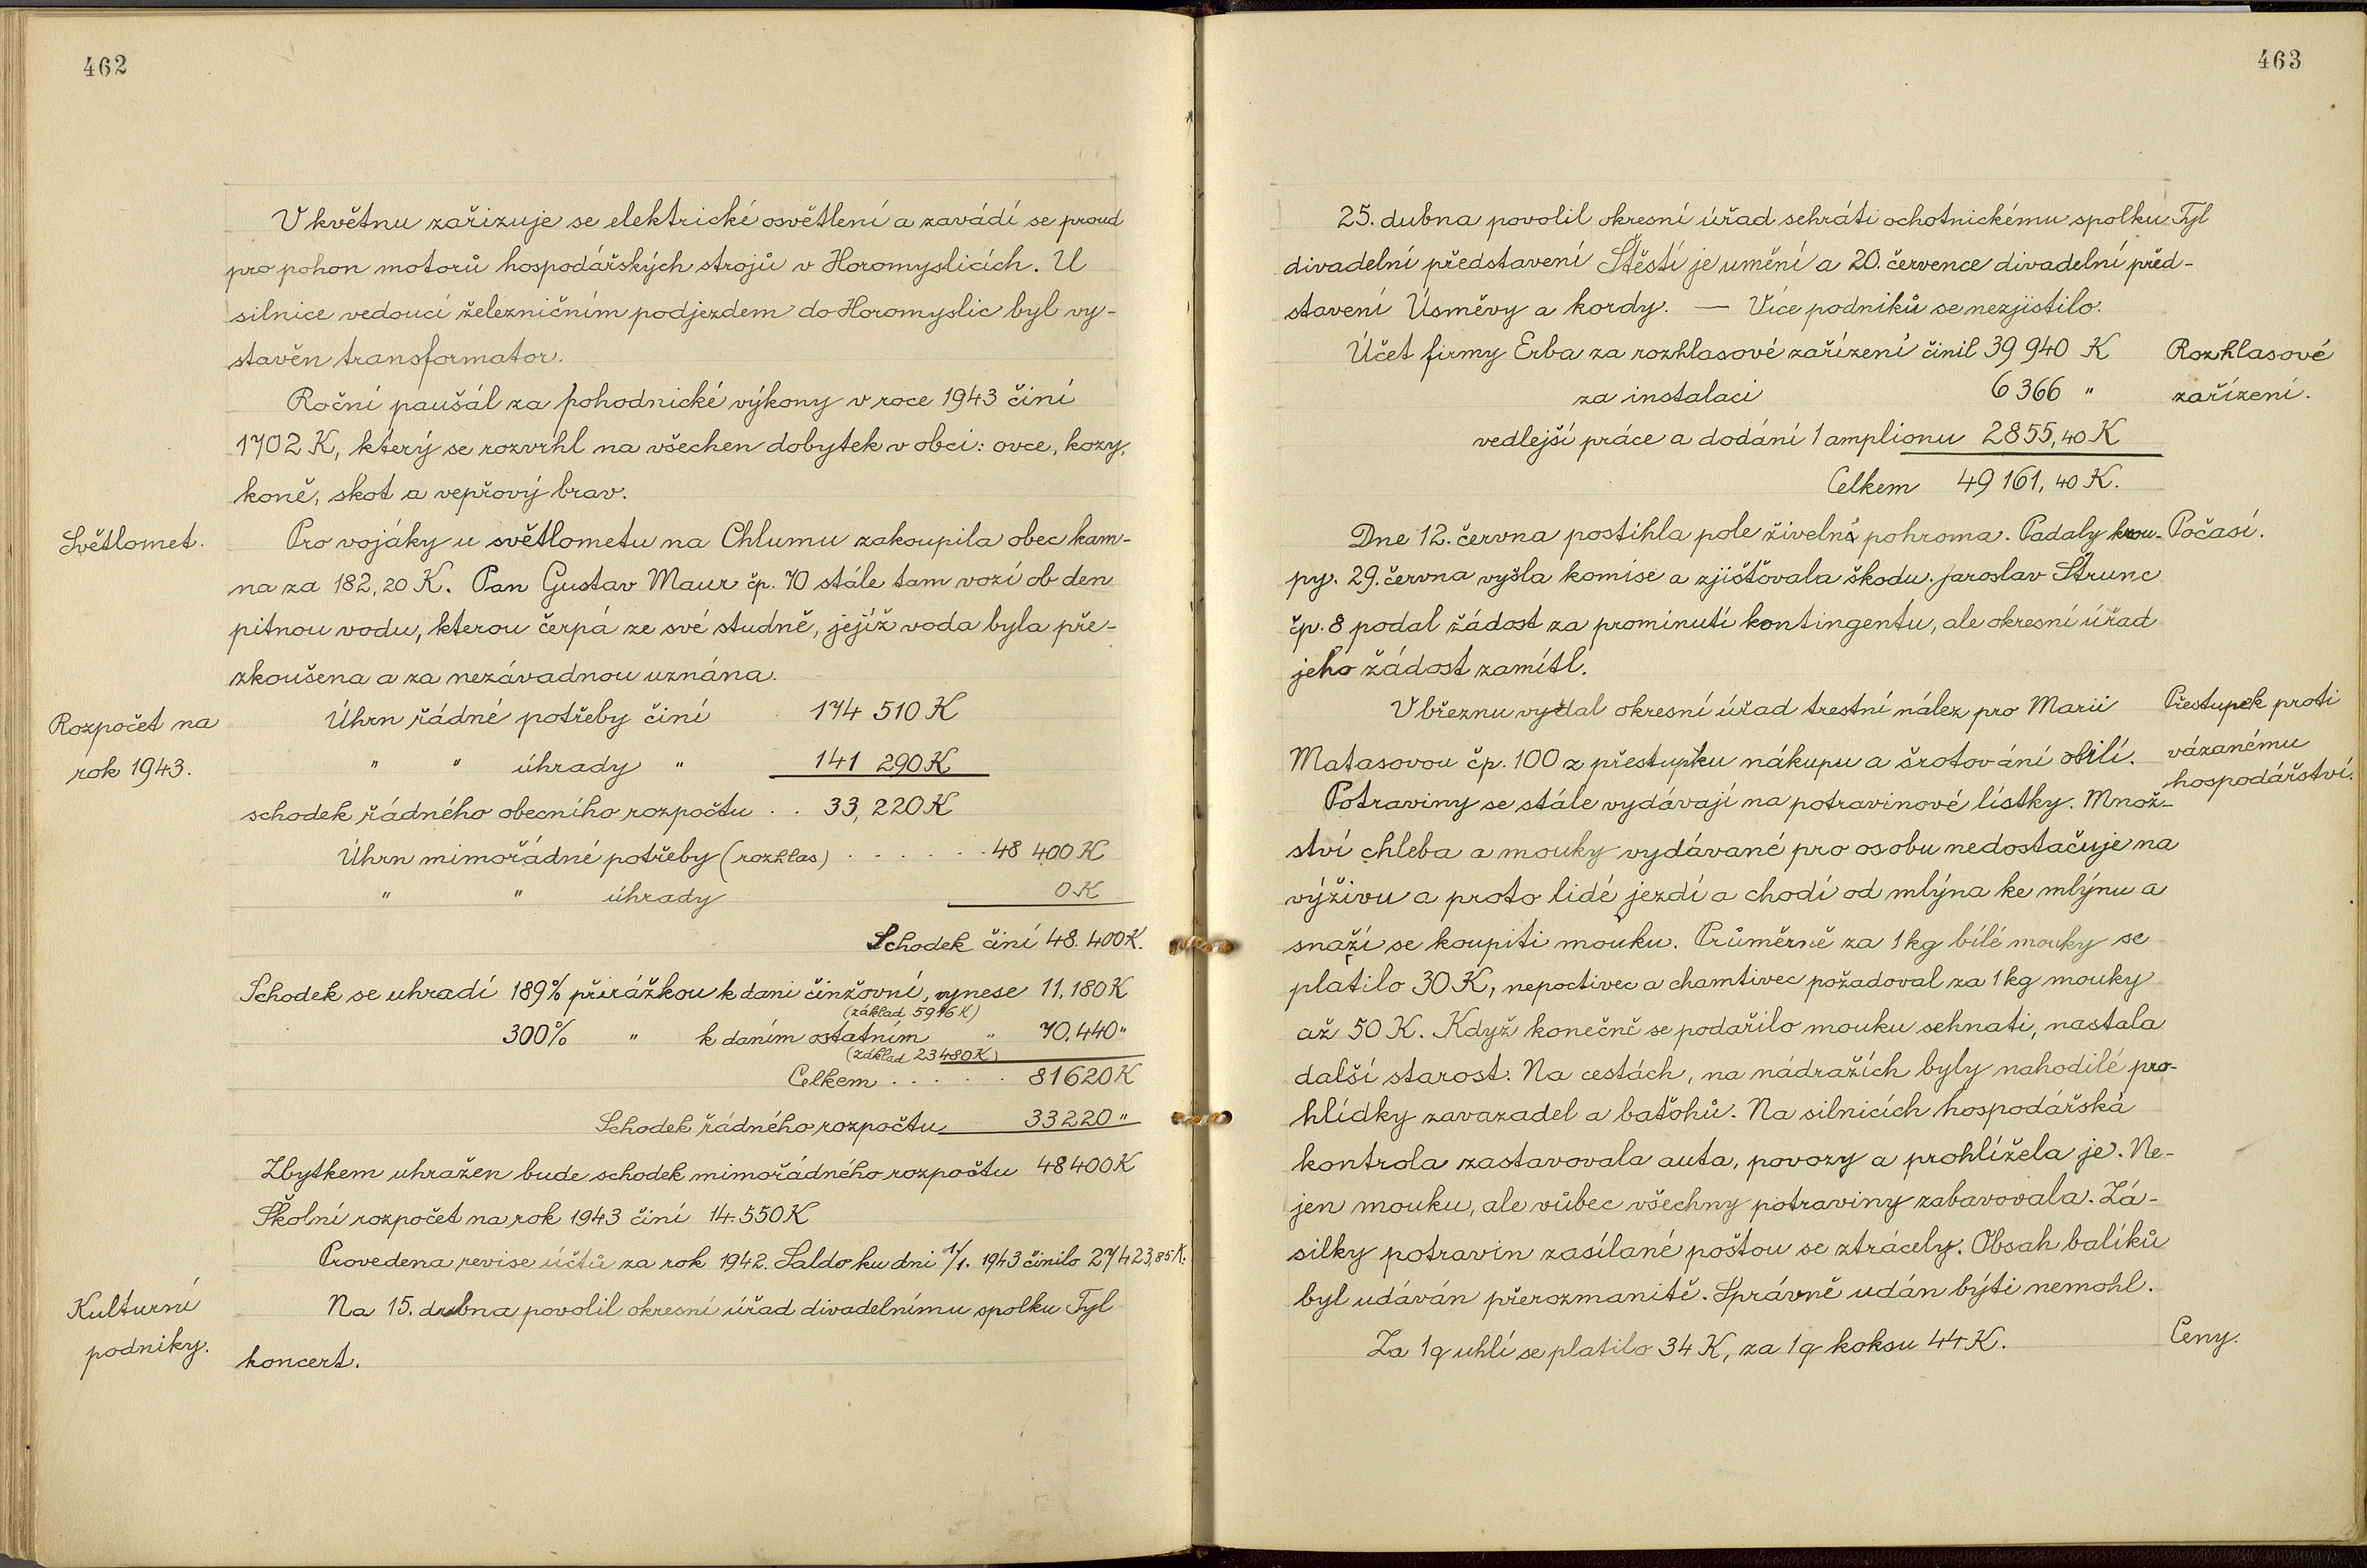 462
V květnu zařizuje se elektrické osvětlení a zavádí se proud
pro pohon motorů hospodářských strojů v Horomyslicích. U
silnice vedoucí železničním podjezdem do Horomyslic byl vy-
stavěn transformator.
Roční paušál za pohodnické výkony v roce 1943 činí
1702 K, který se rozvrhl na všechen dobytek v obci: ovce, kozy,
koně, skot a vepřový brav.
Světlomet.
Pro vojáky u světlometu na Chlumu zakoupila obec kam-
na za 182,20 K. Pan Gustav Maur čp. 70 stále tam vozí ob den
pitnou vodu, kterou čerpá ze své studně, jejíž voda byla pře-
zkoušena a za nezávadnou uznána.
Rozpočet na
rok 1943.
Úhrn řádné potřeby činí 174 510 K
" " úhrady " 141 290 K
schodek řádného obecního rozpočtu . . 33,220 K
Úhrn mimořádné potřeby (rozhlas) . . . . . . 48 400 K
" " úhrady 0 K
Schodek činí 48.400 K.
Schodek se uhradí 189% přirážkou k dani činžovní, vynese 11.180 K
(základ 5916 K)
300% " k daním ostatním " 70.440 "
(základ 23480 K)
Celkem . . . . . 81620 K
Schodek řádného rozpočtu 33220 "
Zbytkem uhražen bude schodek mimořádného rozpočtu 48400 K
Školní rozpočet na rok 1943 činí 14.550 K
Provedena revise účtů za rok 1942. Saldo ku dni 1/1. 1943 činilo 27423,85 K.
Kulturní
podniky.
Na 15. dubna povolil okresní úřad divadelnímu spolku Tyl
koncert.
463
25. dubna povolil okresní úřad sehráti ochotnickému spolku Tyl
divadelní představení Štěstí je umění a 20. července divadelní před-
stavení Úsměvy a kordy. — Více podniků se nezjistilo.
Účet firmy Erba za rozhlasové zařízení činil 39 940 K
za instalaci 6 366 "
vedlejší práce a dodání 1 amplionu 2855,40 K
Celkem 49 161,40 K.
Rozhlasové
zařízení.
Dne 12. června postihla pole živelná pohroma. Padaly krou-
Počasí.
py. 29. června vyšla komise a zjišťovala škodu. Jaroslav Štrunc
čp. 8 podal žádost za prominutí kontingentu, ale okresní úřad
jeho žádost zamítl.
V březnu vydal okresní úřad trestní nález pro Marii
Matasovou čp. 100 z přestupku nákupu a šrotování obilí.
Přestupek proti
vázanému
hospodářství.
Potraviny se stále vydávají na potravinové lístky. Množ-
ství chleba a mouky vydávané pro osobu nedostačuje na
výživu a proto lidé jezdí a chodí od mlýna ke mlýnu a
snaží se koupiti mouku. Průměrně za 1 kg bílé mouky se
platilo 30 K, nepoctivec a chamtivec požadoval za 1 kg mouky
až 50 K. Když konečně se podařilo mouku sehnati, nastala
další starost. Na cestách, na nádražích byly nahodilé pro-
hlídky zavazadel a baťohů. Na silnicích hospodářská
kontrola zastavovala auta, povozy a prohlížela je. Ne-
jen mouku, ale vůbec všechny potraviny zabavovala. Zá-
silky potravin zasílané poštou se ztrácely. Obsah balíků
byl udáván přerozmanitě. Správně udán býti nemohl.
Za 1 q uhlí se platilo 34 K, za 1 q koksu 44 K.
Ceny.